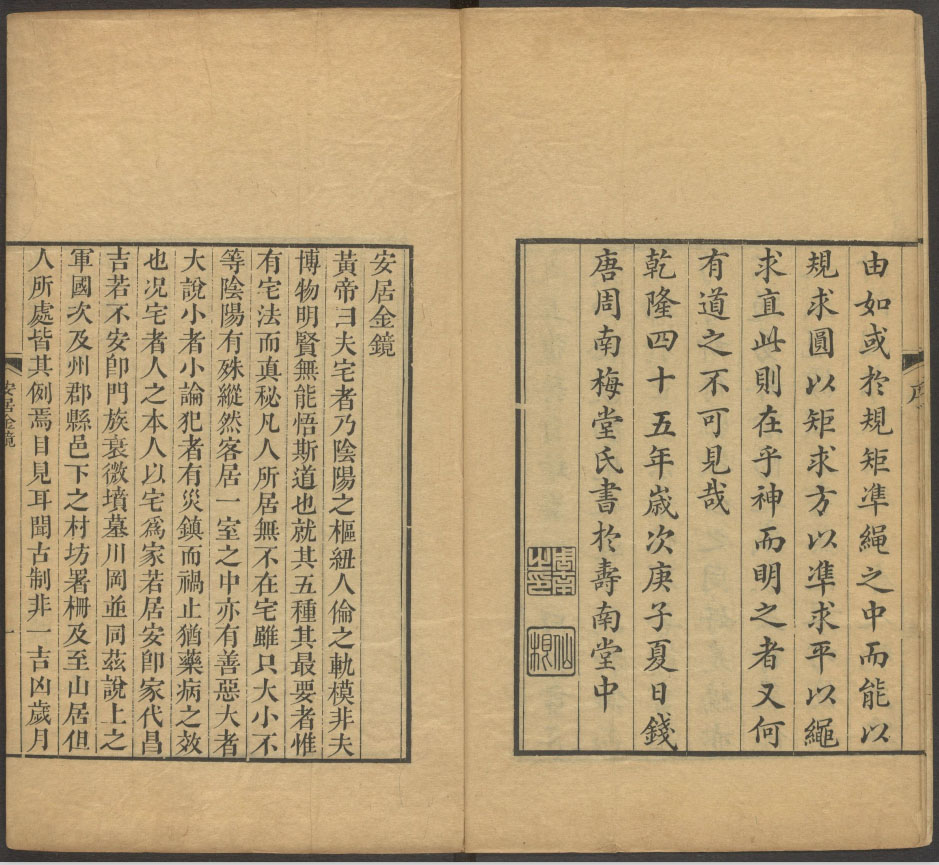 由如或於規矩準繩之中而能以
規求圓以矩求方以準求平以繩
求直此則在乎神而明之者又何
有道之不可見哉
乾隆四十五年歲次庚子夏日錢
唐周南梅堂氏書於壽南堂中
周南
之印
安居金鏡
黃帝曰夫宅者乃陰陽之樞紐人倫之軌模非夫
博物明賢無能悟斯道也就其五種其最要者惟
有宅法而真秘凡人所居無不在宅雖只大小不
等陰陽有殊縱然客居一室之中亦有善惡大者
大說小者小論犯者有災鎮而禍止猶藥病之效
也况宅者人之本人以宅爲家若居安卽家代昌
吉若不安卽門族衰微墳墓川岡並同茲說上之
軍國次及州郡縣邑下之村坊署柵及至山居但
人所處皆其例焉目見耳聞古制非一吉凶歲月
安居金鏡
一